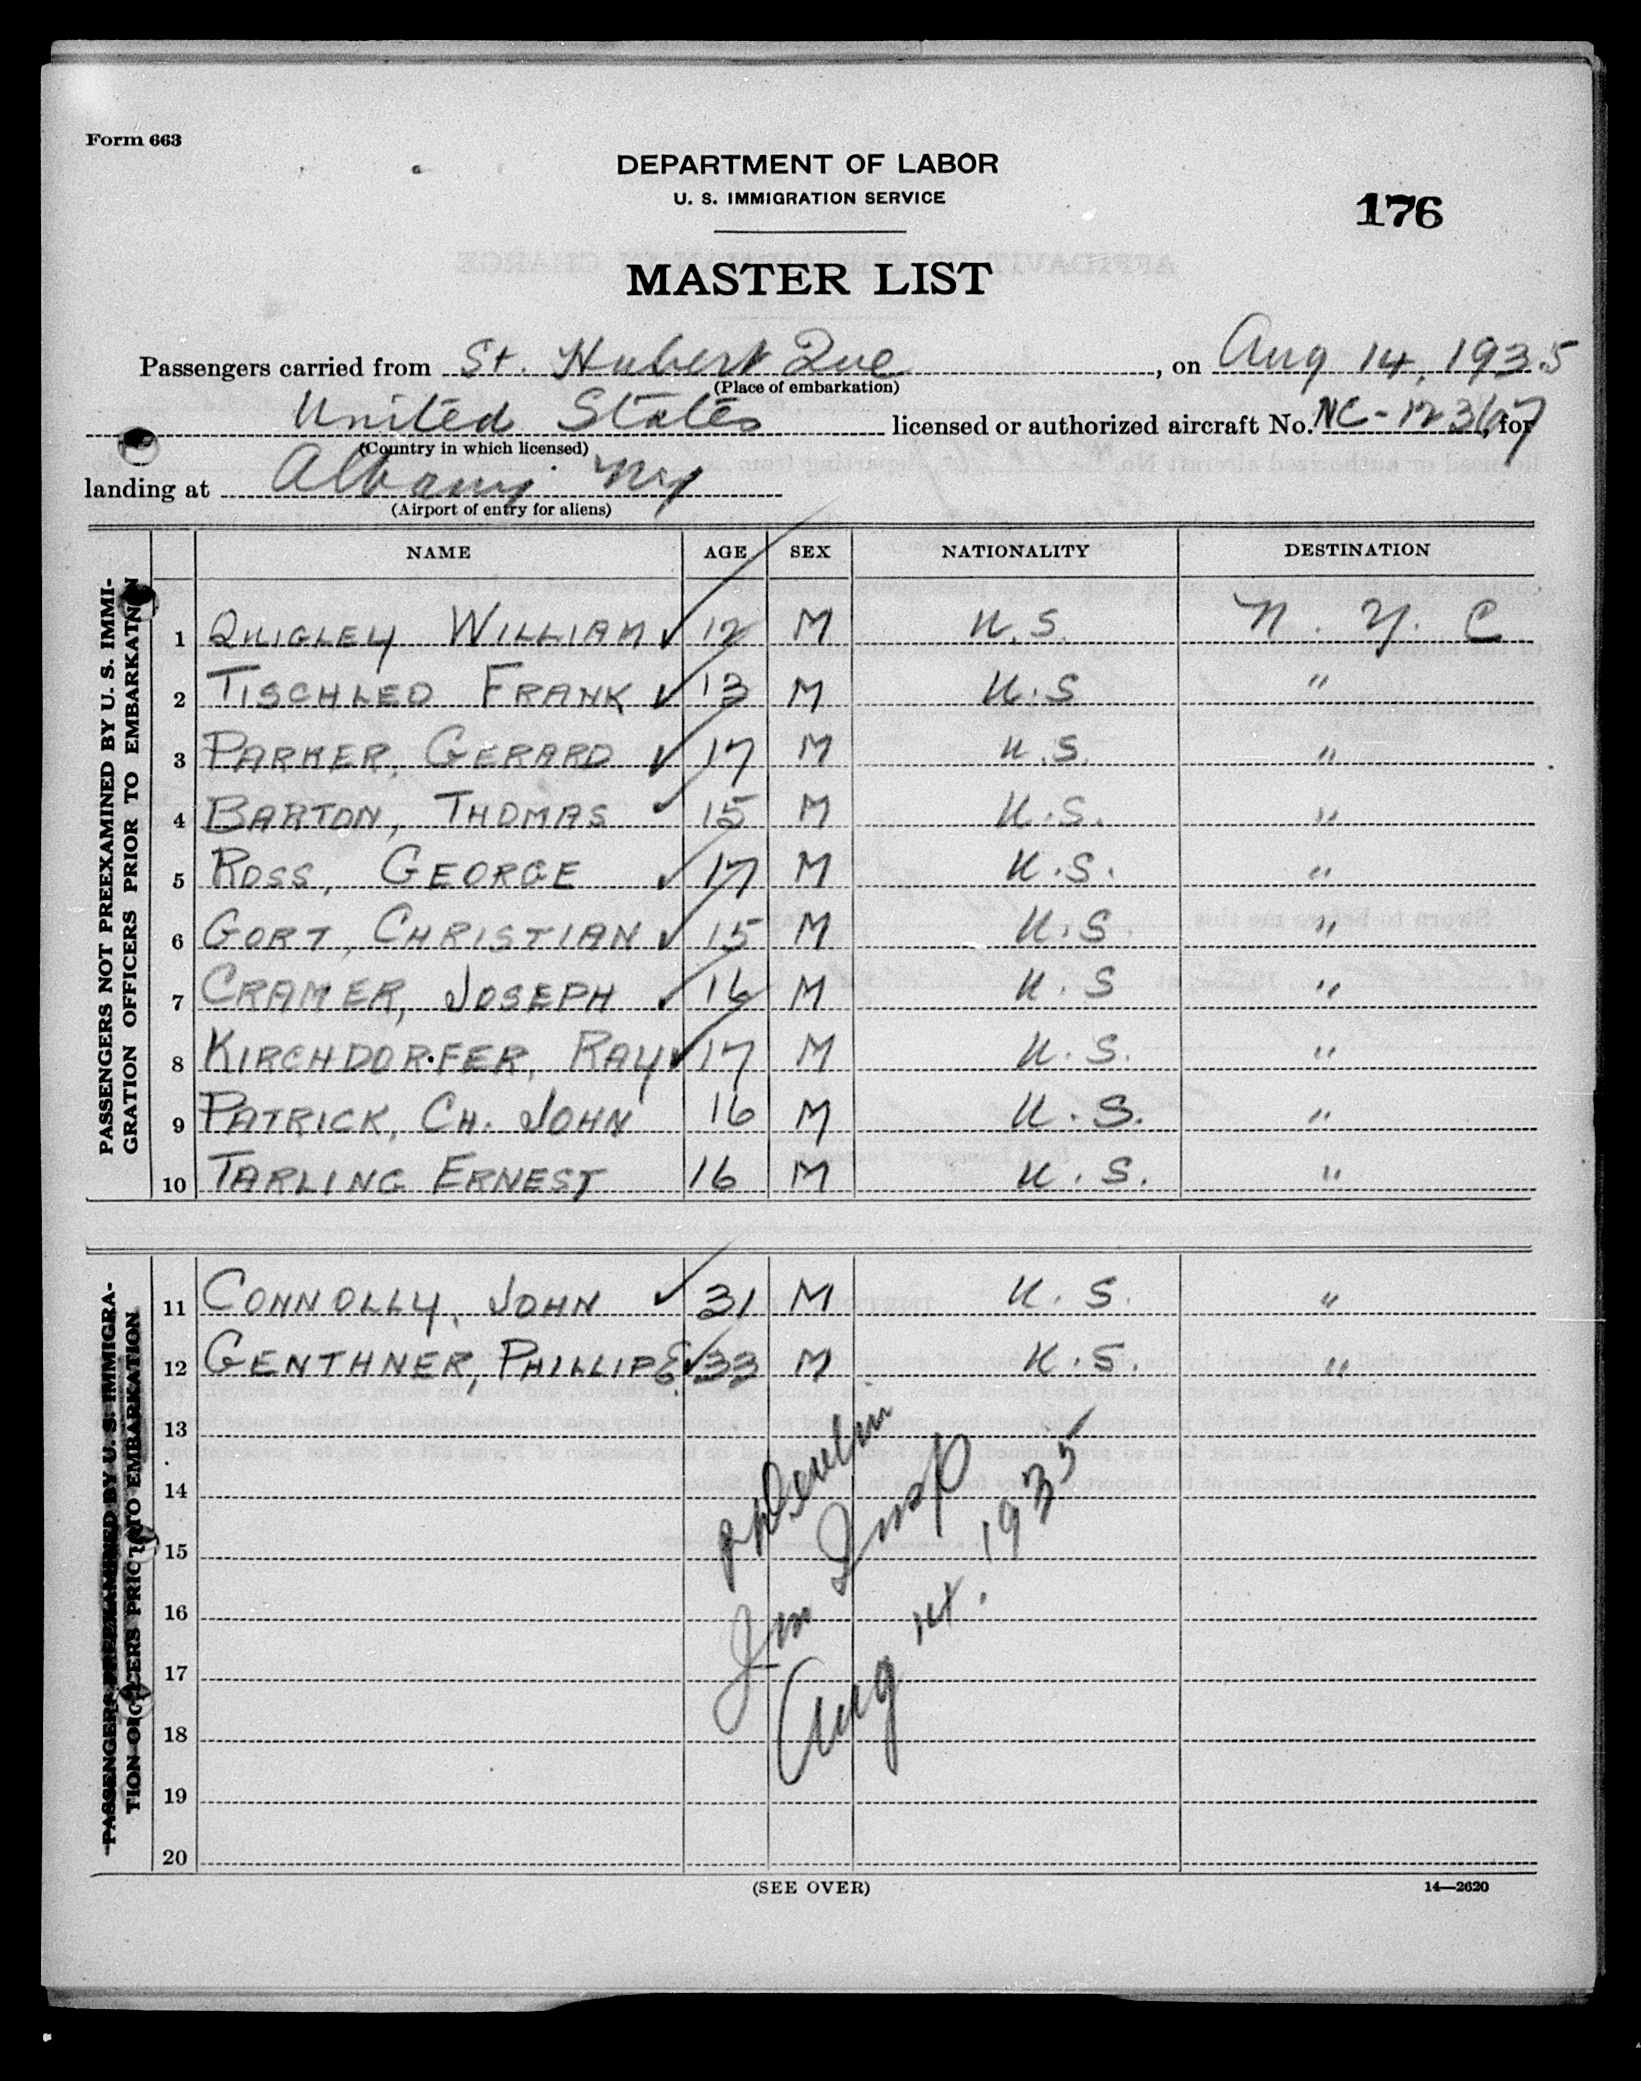 Form 663
DEPARTMENT OF LABOR
U. S. IMMIGRATION SERVICE
176
MASTER LIST
Passengers carried from St. Hubert Que, on Aug 14, 1935
(Place of embarkation)
United States licensed or authorized aircraft No. NC-12367, for
(Country in which licensed)
landing at Albany NY
(Airport of entry for aliens)
NAME AGE SEX NATIONALITY DESTINATION
PASSENGERS NOT PREEXAMINED BY U. S. IMMI-
GRATION OFFICERS PRIOR TO EMBARKATN
1 QUIGLEY WILLIAM ✓ 12 M U.S. N. Y. C
2 TISCHLED FRANK ✓ 13 M U.S "
3 PARKER, GERARD ✓ 17 M U.S. "
4 BARTON, THOMAS ✓ 15 M U.S. "
5 ROSS, GEORGE ✓ 17 M U.S. "
6 GORT, CHRISTIAN ✓ 15 M U.S "
7 CRAMER, JOSEPH ✓ 16 M U.S "
8 KIRCHDORFER, RAY ✓ 17 M U.S. "
9 PATRICK, CH. JOHN 16 M U.S. "
10 TARLING ERNEST 16 M U.S. "
PASSENGERS PREEXAMINED BY U. S. IMMIGRA-
TION OFFICERS PRIOR TO EMBARKATION
11 CONNOLLY, JOHN ✓ 31 M U.S. "
12 GENTHNER, PHILLIP E ✓ 33 M U.S. "
13
14
15
16
17
18
19
20
Imm Insp
Aug 14. 1935
(SEE OVER)
14—2620